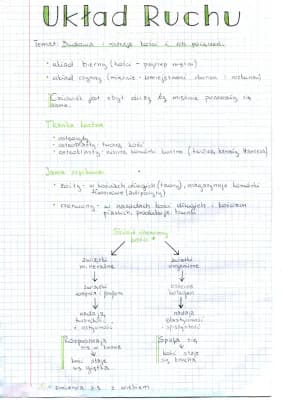 Układ Ruchu
Temat: Budowa i rodzaje kości i ich połączeń.
• układ bierny (kości - poprzez mięśnie)
• układ czynny (mięśnie -
Człowiek jest zbyt duży by mięśnie poruszały się same.
Tkanka kostna
• osteocyty
• osteoblasty - tworzą kość
• osteoklasty - niszczą komórki kostne
Jama szpikowa
• żółty - w kościach długich (trzony), magazynuje komórki
tłuszczowe (adipocyty)
• czerwony - w nasadach kości długich i kościach
płaskich, produkuje krwinki
Skład chemiczny
kości *
związki
mineralne
związki
organiczne
związki
wapnia i
osseina
kolagen
nadają
twardość
i sztywność
nadają
elastyczność
i sprężystość
Rozpuszczają
się w kwasie
Spala się
kość staje
się giętka
kość staje
się krucha
* - zmienia się z wiekiem